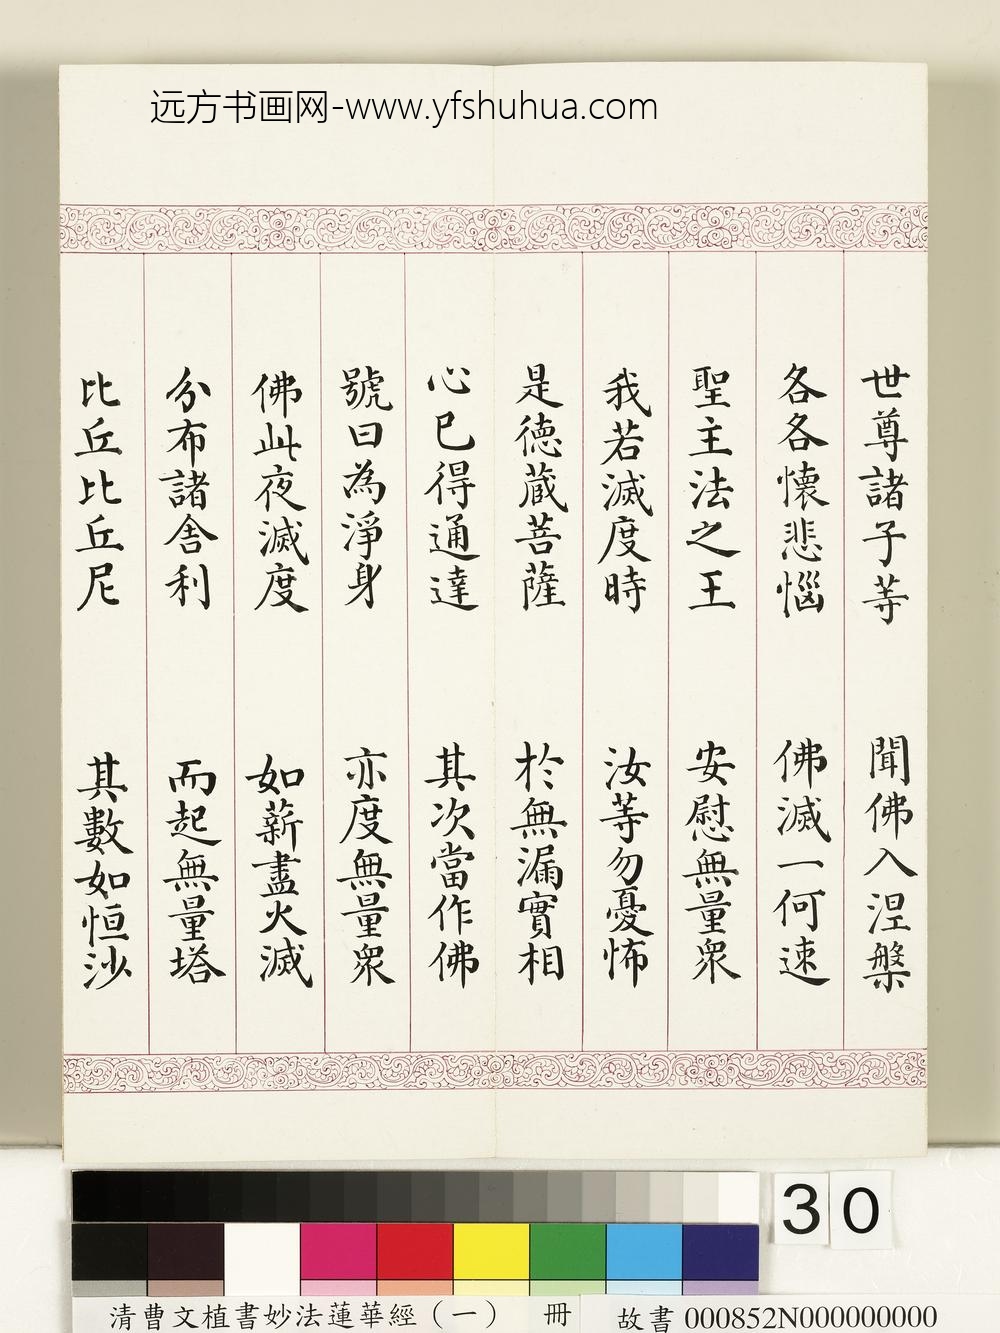 远方书画网-www.yfshuhua.com
世尊諸子等 聞佛入涅槃
各各懷悲惱 佛滅一何速
聖主法之王 安慰無量衆
我若滅度時 汝等勿憂怖
是德藏菩薩 於無漏實相
心已得通達 其次當作佛
號曰為淨身 亦度無量衆
佛此夜滅度 如薪盡火滅
分布諸舍利 而起無量塔
比丘比丘尼 其數如恒沙
30
清曹文植書妙法蓮華經（一） 冊 故書000852N000000000